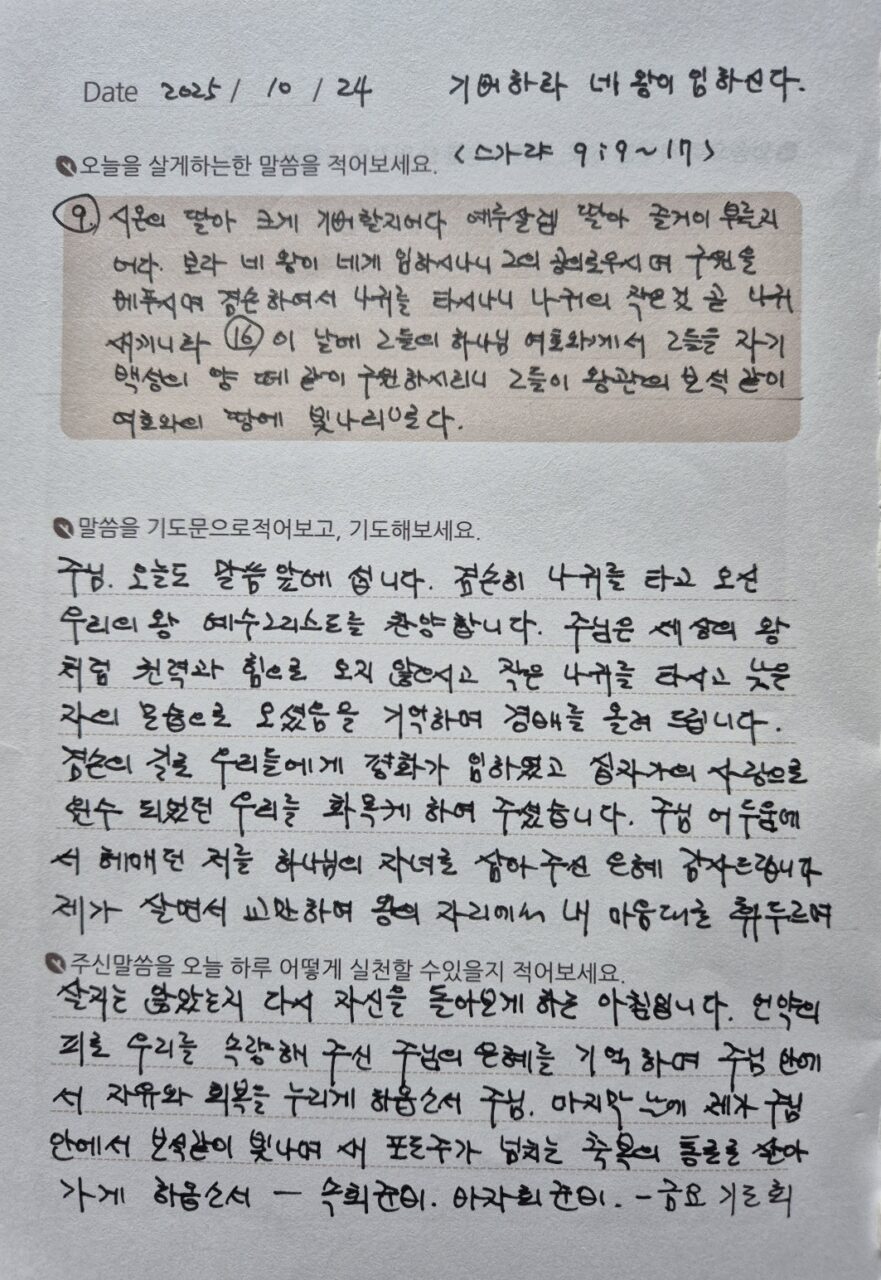 Date 2025 / 10 / 24 기뻐하라 네 왕이 임하신다.
오늘을 살게하는한 말씀을 적어보세요. <스가랴 9:9~17>
9. 시온의 딸아 크게 기뻐할지어다 예루살렘 딸아 즐거이 부를지
어다. 보라 네 왕이 네게 임하시나니 그의 공의로우시며 구원을
베푸시며 겸손하여서 나귀를 타시나니 나귀의 작은것 곧 나귀
새끼니라 16 이 날에 그들의 하나님 여호와께서 그들을 자기
백성의 양 떼 같이 구원하시리니 그들이 왕관의 보석 같이
여호와의 땅에 빛나리로다.
말씀을 기도문으로적어보고, 기도해보세요.
주님. 오늘도 말씀 앞에 섭니다. 겸손히 나귀를 타고 오신
우리의 왕 예수그리스도를 찬양합니다. 주님은 세상의 왕
처럼 권력과 힘으로 오지 않으시고 작은 나귀를 타시고 낮은
자의 모습으로 오셨음을 기억하며 경배를 올려 드립니다.
겸손의 길로 우리들에게 평화가 임하였고 십자가의 사랑으로
원수 되었던 우리를 화목케 하여 주셨습니다. 주님 어두움에
서 헤매던 저를 하나님의 자녀로 삼아 주신 은혜 감사드립니다
제가 살면서 교만하여 왕의 자리에서 내 마음대로 휘두르며
주신말씀을 오늘 하루 어떻게 실천할 수있을지 적어보세요.
살지는 않았는지 다시 자신을 돌아보게 하는 아침입니다. 언약의
피로 우리를 속량해 주신 주님의 은혜를 기억하며 주님 안에
서 자유와 회복을 누리게 하옵소서 주님. 마지막 는에 제가 주님
안에서 보석같이 빛나며 새 포도주가 넘치는 축복의 통로로 살아
가게 하옵소서 - 속회준비. 바자회준비. - 금요 기도회